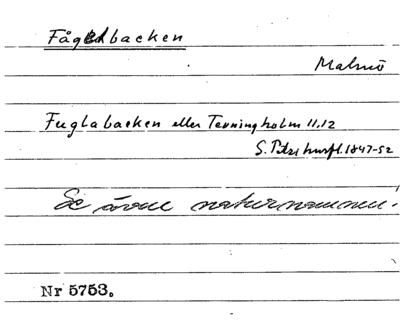 Fågelbacken
Malmö
Fuglabacken eller Terningholm 11.12
S. Petri husfl. 1847-52
Se även naturnamnen!
Nr 5753.